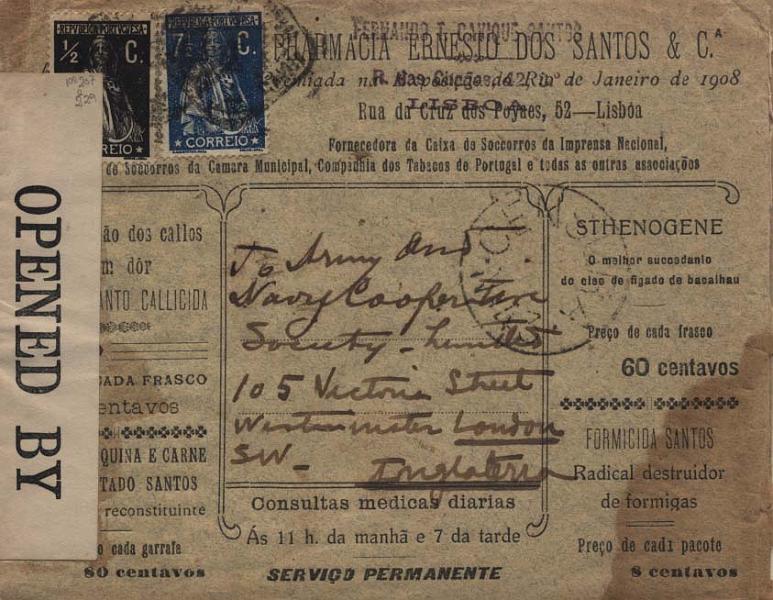 REPVBLICA PORTVGVESA
½ C.
CORREIO
REPVBLICA PORTVGVESA
7½ C.
CORREIO
PHARMACIA ERNESTO DOS SANTOS & C.ª
FERNANDO E. SANTOS
Premiada na Exposição do Rio de Janeiro de 1908
LISBOA
Rua da Cruz dos Poyaes, 52—Lisbôa
Fornecedora da Caixa de Soccorros da Imprensa Nacional,
de Soccorros da Camara Municipal, Companhia dos Tabacos de Portugal e todas as outras associações
OPENED BY
ão dos callos
m dôr
ANTO CALLICIDA
CADA FRASCO
entavos
QUINA E CARNE
TADO SANTOS
reconstituinte
o cada garrafa
80 centavos
To Army and
Navy Cooperative
Society - Limited
105 Victoria Street
Westminster London
SW -
Inglaterra
Consultas medicas diarias
Ás 11 h. da manhã e 7 da tarde
SERVIÇO PERMANENTE
STHENOGENE
O melhor succedanio
do oleo de figado de bacalhau
Preço de cada frasco
60 centavos
FORMICIDA SANTOS
Radical destruidor
de formigas
Preço de cada pacote
8 centavos